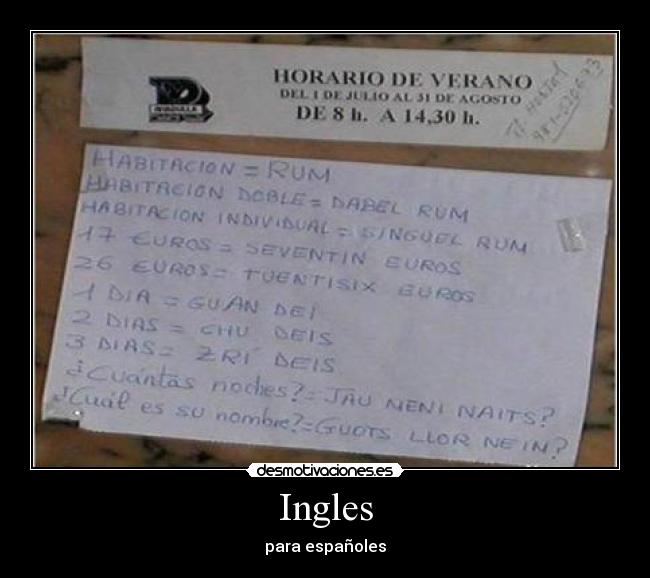 HORARIO DE VERANO
DEL 1 DE JULIO AL 31 DE AGOSTO
DE 8 h. A 14,30 h.
HABITACION = RUM
HABITACION DOBLE = DABEL RUM
HABITACION INDIVIDUAL = SINGUEL RUM
17 EUROS = SEVENTIN EUROS
26 EUROS = TUENTISIX EUROS
1 DIA = GUAN DEI
2 DIAS = CHU DEIS
3 DIAS = ZRÍ DEIS
¿Cuántas noches? = JAU MENI NAITS?
¿Cuál es su nombre? = GUOTS LLOR NEIM?
desmotivaciones.es
Ingles
para españoles